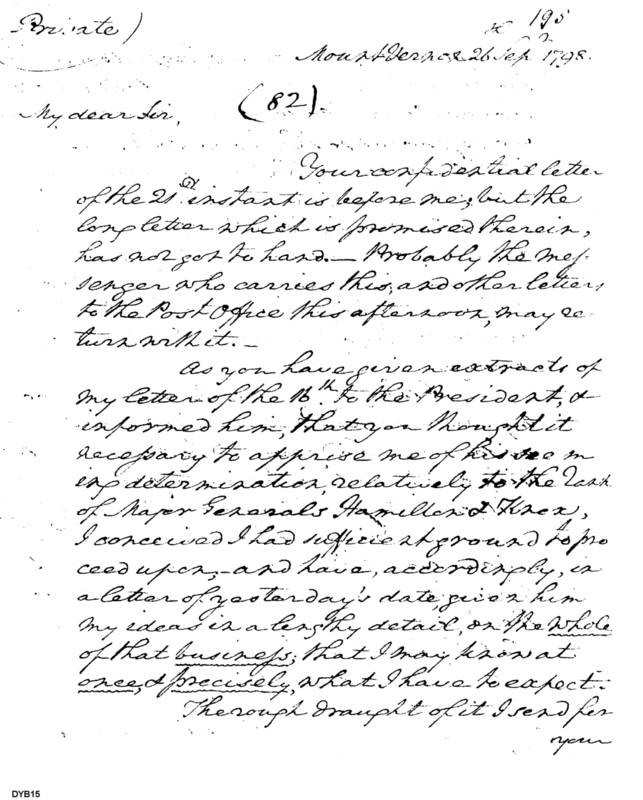 Private)
195
Mount Vernon 26 Sep 1798.
(82).
My dear Sir,
Your confidential letter
of the 21st instant is before me, but the
long letter which is promised therein,
has not got to hand.— Probably the mes-
senger who carries this, and other letters
to the Post Office this afternoon, may re-
turn with it.—
As you have given extracts of
my letter of the 16th. to the President, &
informed him, that you thought it
necessary to apprise me of his seem
ing determination, relatively to the rank
of Major Generals Hamilton & Knox,
I conceived I had sufficient ground to pro
ceed upon,—and have, accordingly, in
a letter of yesterday's date given him
my ideas in a lengthy detail, on the whole
of that business; that I may know at
once, & precisely, what I have to expect.
The rough draught of it I send for
your
DYB15